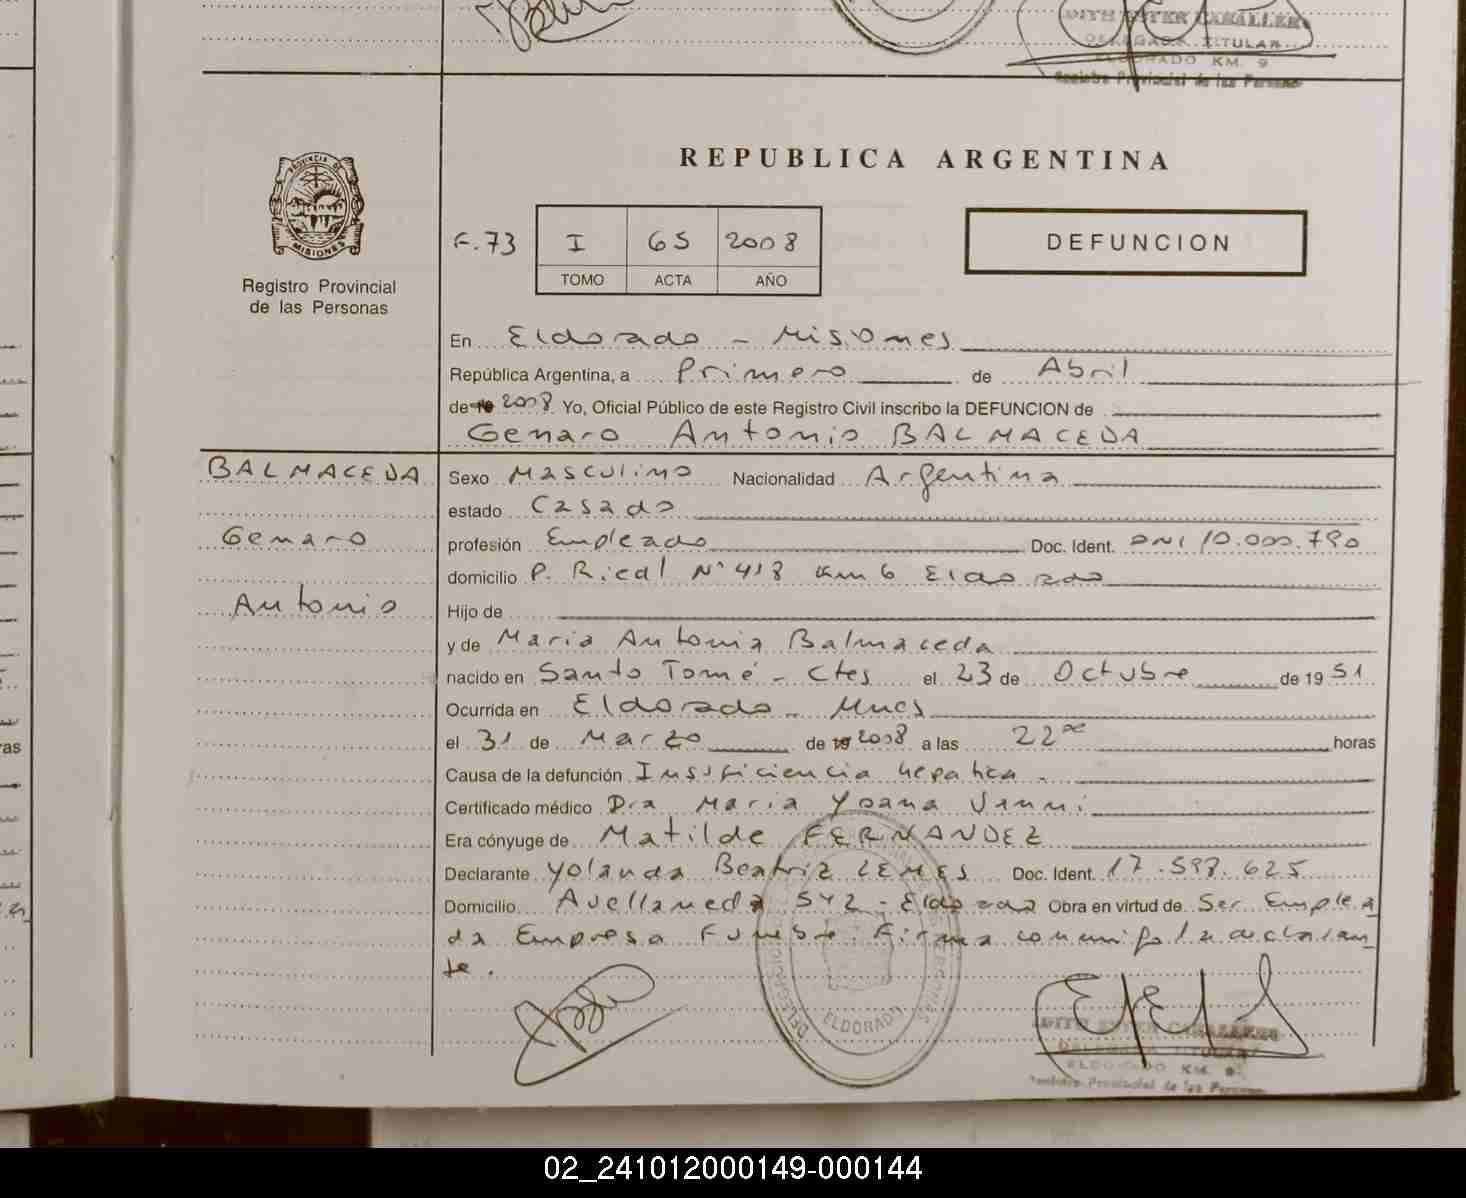 EDITH ESTER CABALLERO
DELEGADA TITULAR
ELDORADO KM. 9
Registro Provincial de las Personas
REPUBLICA ARGENTINA
PROVINCIA DE
MISIONES
Registro Provincial
de las Personas
F. 73 I 65 2008
TOMO ACTA AÑO
DEFUNCION
En Eldorado - Misiones
República Argentina, a Primero de Abril
de 19 2008. Yo, Oficial Público de este Registro Civil inscribo la DEFUNCION de
Genaro Antonio BALMACEDA
BALMACEDA
Genaro
Antonio
Sexo Masculino Nacionalidad Argentina
estado Casado
profesión Empleado Doc. Ident. DNI 10.000.790
domicilio P. Riedl N° 418 Km 6 Eldorado
Hijo de
y de Maria Antonia Balmaceda
nacido en Santo Tomé - Ctes el 23 de Octubre de 1951
Ocurrida en Eldorado - Mnes
el 31 de Marzo de 19 2008 a las 22 oo horas
Causa de la defunción Insuficiencia hepatica -
Certificado médico Dra Maria Yoana Vanni
Era cónyuge de Matilde FERNANDEZ
Declarante Yolanda Beatriz LEMES Doc. Ident. 17.598.625
Domicilio Avellaneda 542 - Eldorado Obra en virtud de Ser Emplea
da Empresa Funebre. Firma conmigo la declaran
te.
ELDORADO
EDITH ESTER CABALLERO
DELEGADA TITULAR
ELDORADO KM. 9
Registro Provincial de las Personas
02_241012000149-000144